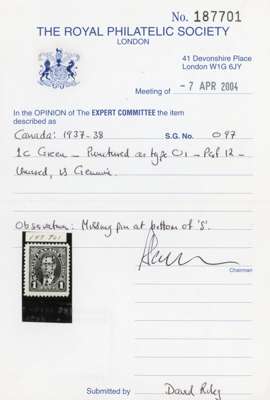 No. 187701
THE ROYAL PHILATELIC SOCIETY
LONDON
41 Devonshire Place
London W1G 6JY
Meeting of - 7 APR 2004
In the OPINION of The EXPERT COMMITTEE the item
described as
Canada: 1937-38 S.G. No. O97
1c Green - Punctured as type O1 - Perf 12 -
Unused, is Genuine.
Observation: Missing pin at bottom of 'S'.
187 701
1 1
Chairman
Submitted by David Riley